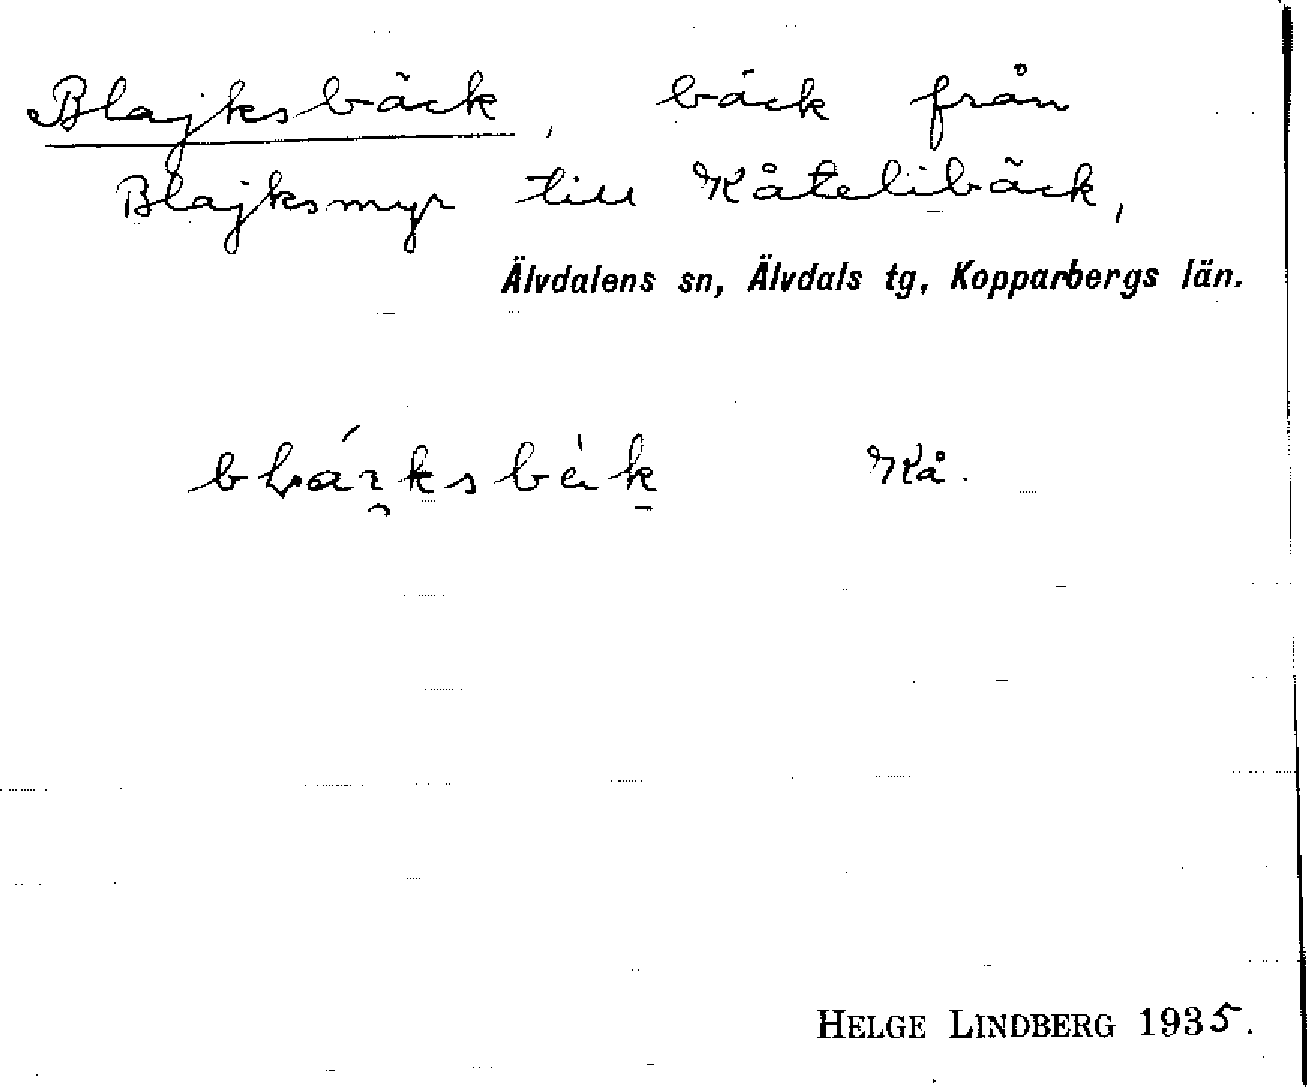 Blajksbäck, bäck från
Blajksmyr till Kåtelibäck,
Älvdalens sn, Älvdals tg, Kopparbergs län.
Kå.
HELGE LINDBERG 1935.